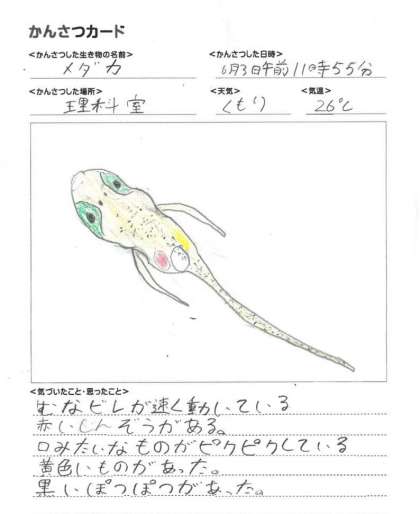 かんさつカード
<かんさつした生き物の名前> <かんさつした日時>
メダカ 6月3日午前11時55分
<かんさつした場所> <天気> <気温>
理科室 くもり 26℃
<気づいたこと・思ったこと>
むなビレが速く動いている
赤いしんぞうがある。
口みたいなものがピクピクしている
黄色いものがあった。
黒いぽつぽつがあった。